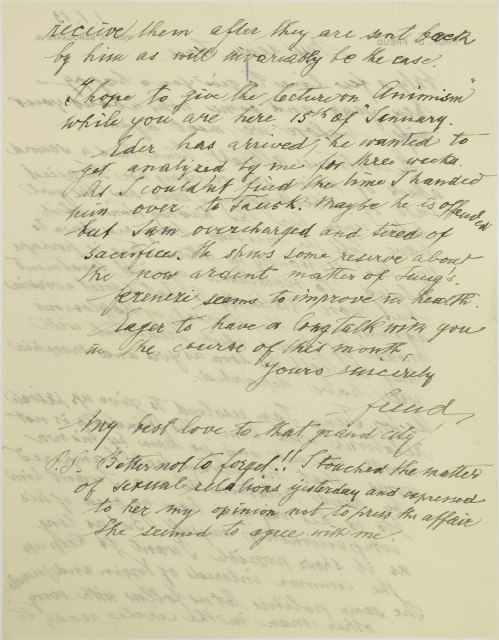 receive them after they are sent back
by him as will invariably be the case.
I hope to give the lecture on "Animism"
while you are here, 15th of January.
Eder has arrived, he wanted to
get analyzed by me for three weeks.
As I couldn't find the time I handed
him over to Tausk. Maybe he is offended
but I am overcharged and tired of
sacrifices. He shows some reserve about
the now ardent matter of Jung's.
Ferenczi seems to improve in health.
Eager to have a long talk with you
in the course of this month,
Yours sincerely
Freud,
My best love to that grand city
P.S. Better not to forget!! I touched the matter
of sexual relations yesterday and expressed
to her my opinion not to press the affair
She seemed to agree with me.